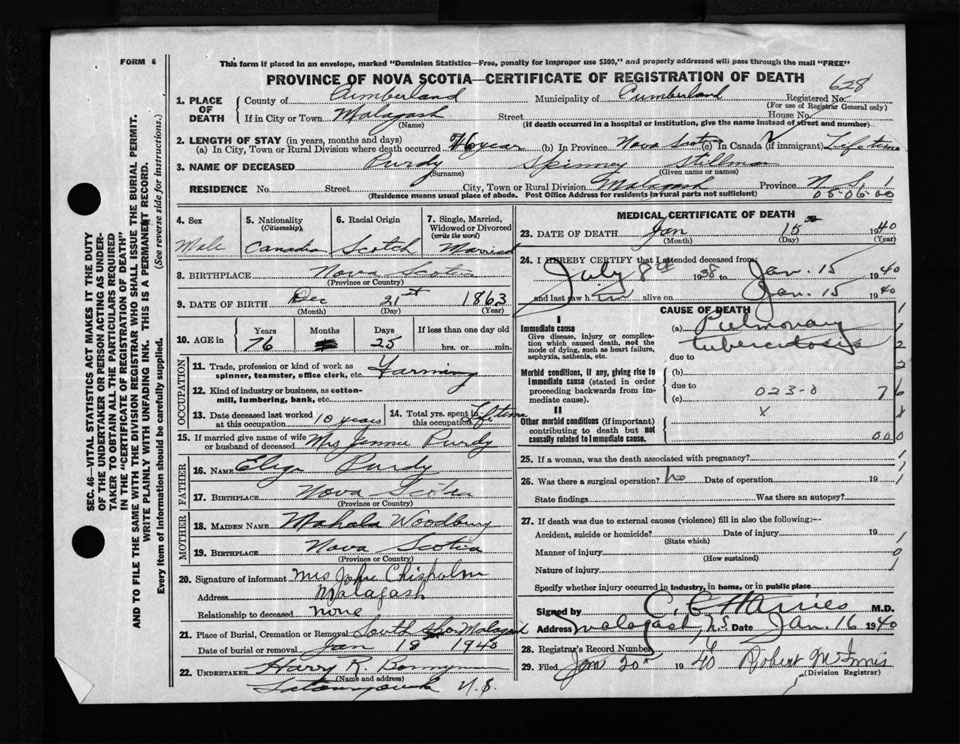 FORM 6
This form if placed in an envelope, marked "Dominion Statistics—Free, penalty for improper use $300," and properly addressed will pass through the mail "FREE"
PROVINCE OF NOVA SCOTIA—CERTIFICATE OF REGISTRATION OF DEATH
628
1. PLACE OF DEATH County of Cumberland Municipality of Cumberland Registered No.
(For use of Registrar General only)
If in City or Town Malagash Street House No.
(Name) (If death occurred in a hospital or institution, give the name instead of street and number)
2. LENGTH OF STAY (in years, months and days)
(a) In City, Town or Rural Division where death occurred 76 year (b) In Province Nova Scotia (c) In Canada (if immigrant) Lifetime
3. NAME OF DECEASED Purdy Spinney Stillman
(Surname) (Given name or names)
RESIDENCE No. Street City, Town or Rural Division Malagash Province N.S.
(Residence means usual place of abode. Post Office Address for residents in rural parts not sufficient)
05-06-00
4. Sex Male
5. Nationality (Citizenship) Canadian
6. Racial Origin Scotch
7. Single, Married, Widowed or Divorced (write the word) Married
8. BIRTHPLACE Nova Scotia
(Province or Country)
9. DATE OF BIRTH Dec 21st 1863
(Month) (Day) (Year)
10. AGE in Years Months Days If less than one day old
76 25 hrs. or min.
OCCUPATION
11. Trade, profession or kind of work as spinner, teamster, office clerk, etc. Farming
12. Kind of industry or business, as cotton-mill, lumbering, bank, etc.
13. Date deceased last worked at this occupation 10 years
14. Total yrs. spent in this occupation Lifetime
15. If married give name of wife or husband of deceased Mrs Jennie Purdy
FATHER
16. NAME Purdy
17. BIRTHPLACE Nova Scotia
(Province or Country)
MOTHER
18. MAIDEN NAME Mahala Woodbury
19. BIRTHPLACE Nova Scotia
(Province or Country)
20. Signature of informant Mrs John Chisholm
Address Malagash
Relationship to deceased None
21. Place of Burial, Cremation or Removal South Shore Malagash
Date of burial or removal Jan 18 1940
22. UNDERTAKER Harry R.
(Name and address)
N.S.
MEDICAL CERTIFICATE OF DEATH
23. DATE OF DEATH Jan 15 1940
(Month) (Day) (Year)
24. I HEREBY CERTIFY that I attended deceased from:
July 8th 1938 to Jan. 15 1940
and last saw him alive on Jan. 15 1940
CAUSE OF DEATH
I
Immediate cause
Give disease, injury or complication which caused death, not the mode of dying, such as heart failure, asphyxia, asthenia, etc.
(a) Pulmonary tuberculosis
due to
Morbid conditions, if any, giving rise to immediate cause (stated in order proceeding backwards from immediate cause).
(b)
due to
(c) 023-8
76
X
II
Other morbid conditions (if important) contributing to death but not causally related to immediate cause.
000
25. If a woman, was the death associated with pregnancy?
26. Was there a surgical operation? No Date of operation 19
State findings Was there an autopsy?
27. If death was due to external causes (violence) fill in also the following:—
Accident, suicide or homicide? Date of injury 19
(State which)
Manner of injury
(How sustained)
Nature of injury
Specify whether injury occurred in industry, in home, or in public place
Signed by C. E. Harries M.D.
Address Malagash, N.S. Date Jan. 16 1940
28. Registrar's Record Number
29. Filed Jan 20th 1940 Robert McInnis
(Division Registrar)
SEC. 46—VITAL STATISTICS ACT MAKES IT THE DUTY
OF THE UNDERTAKER OR PERSON ACTING AS UNDER-
TAKER TO OBTAIN ALL THE PARTICULARS REQUIRED
IN THE "CERTIFICATE OF REGISTRATION OF DEATH"
AND TO FILE THE SAME WITH THE DIVISION REGISTRAR WHO SHALL ISSUE THE BURIAL PERMIT.
WRITE PLAINLY WITH UNFADING INK. THIS IS A PERMANENT RECORD.
Every item of information should be carefully supplied. (See reverse side for instructions.)